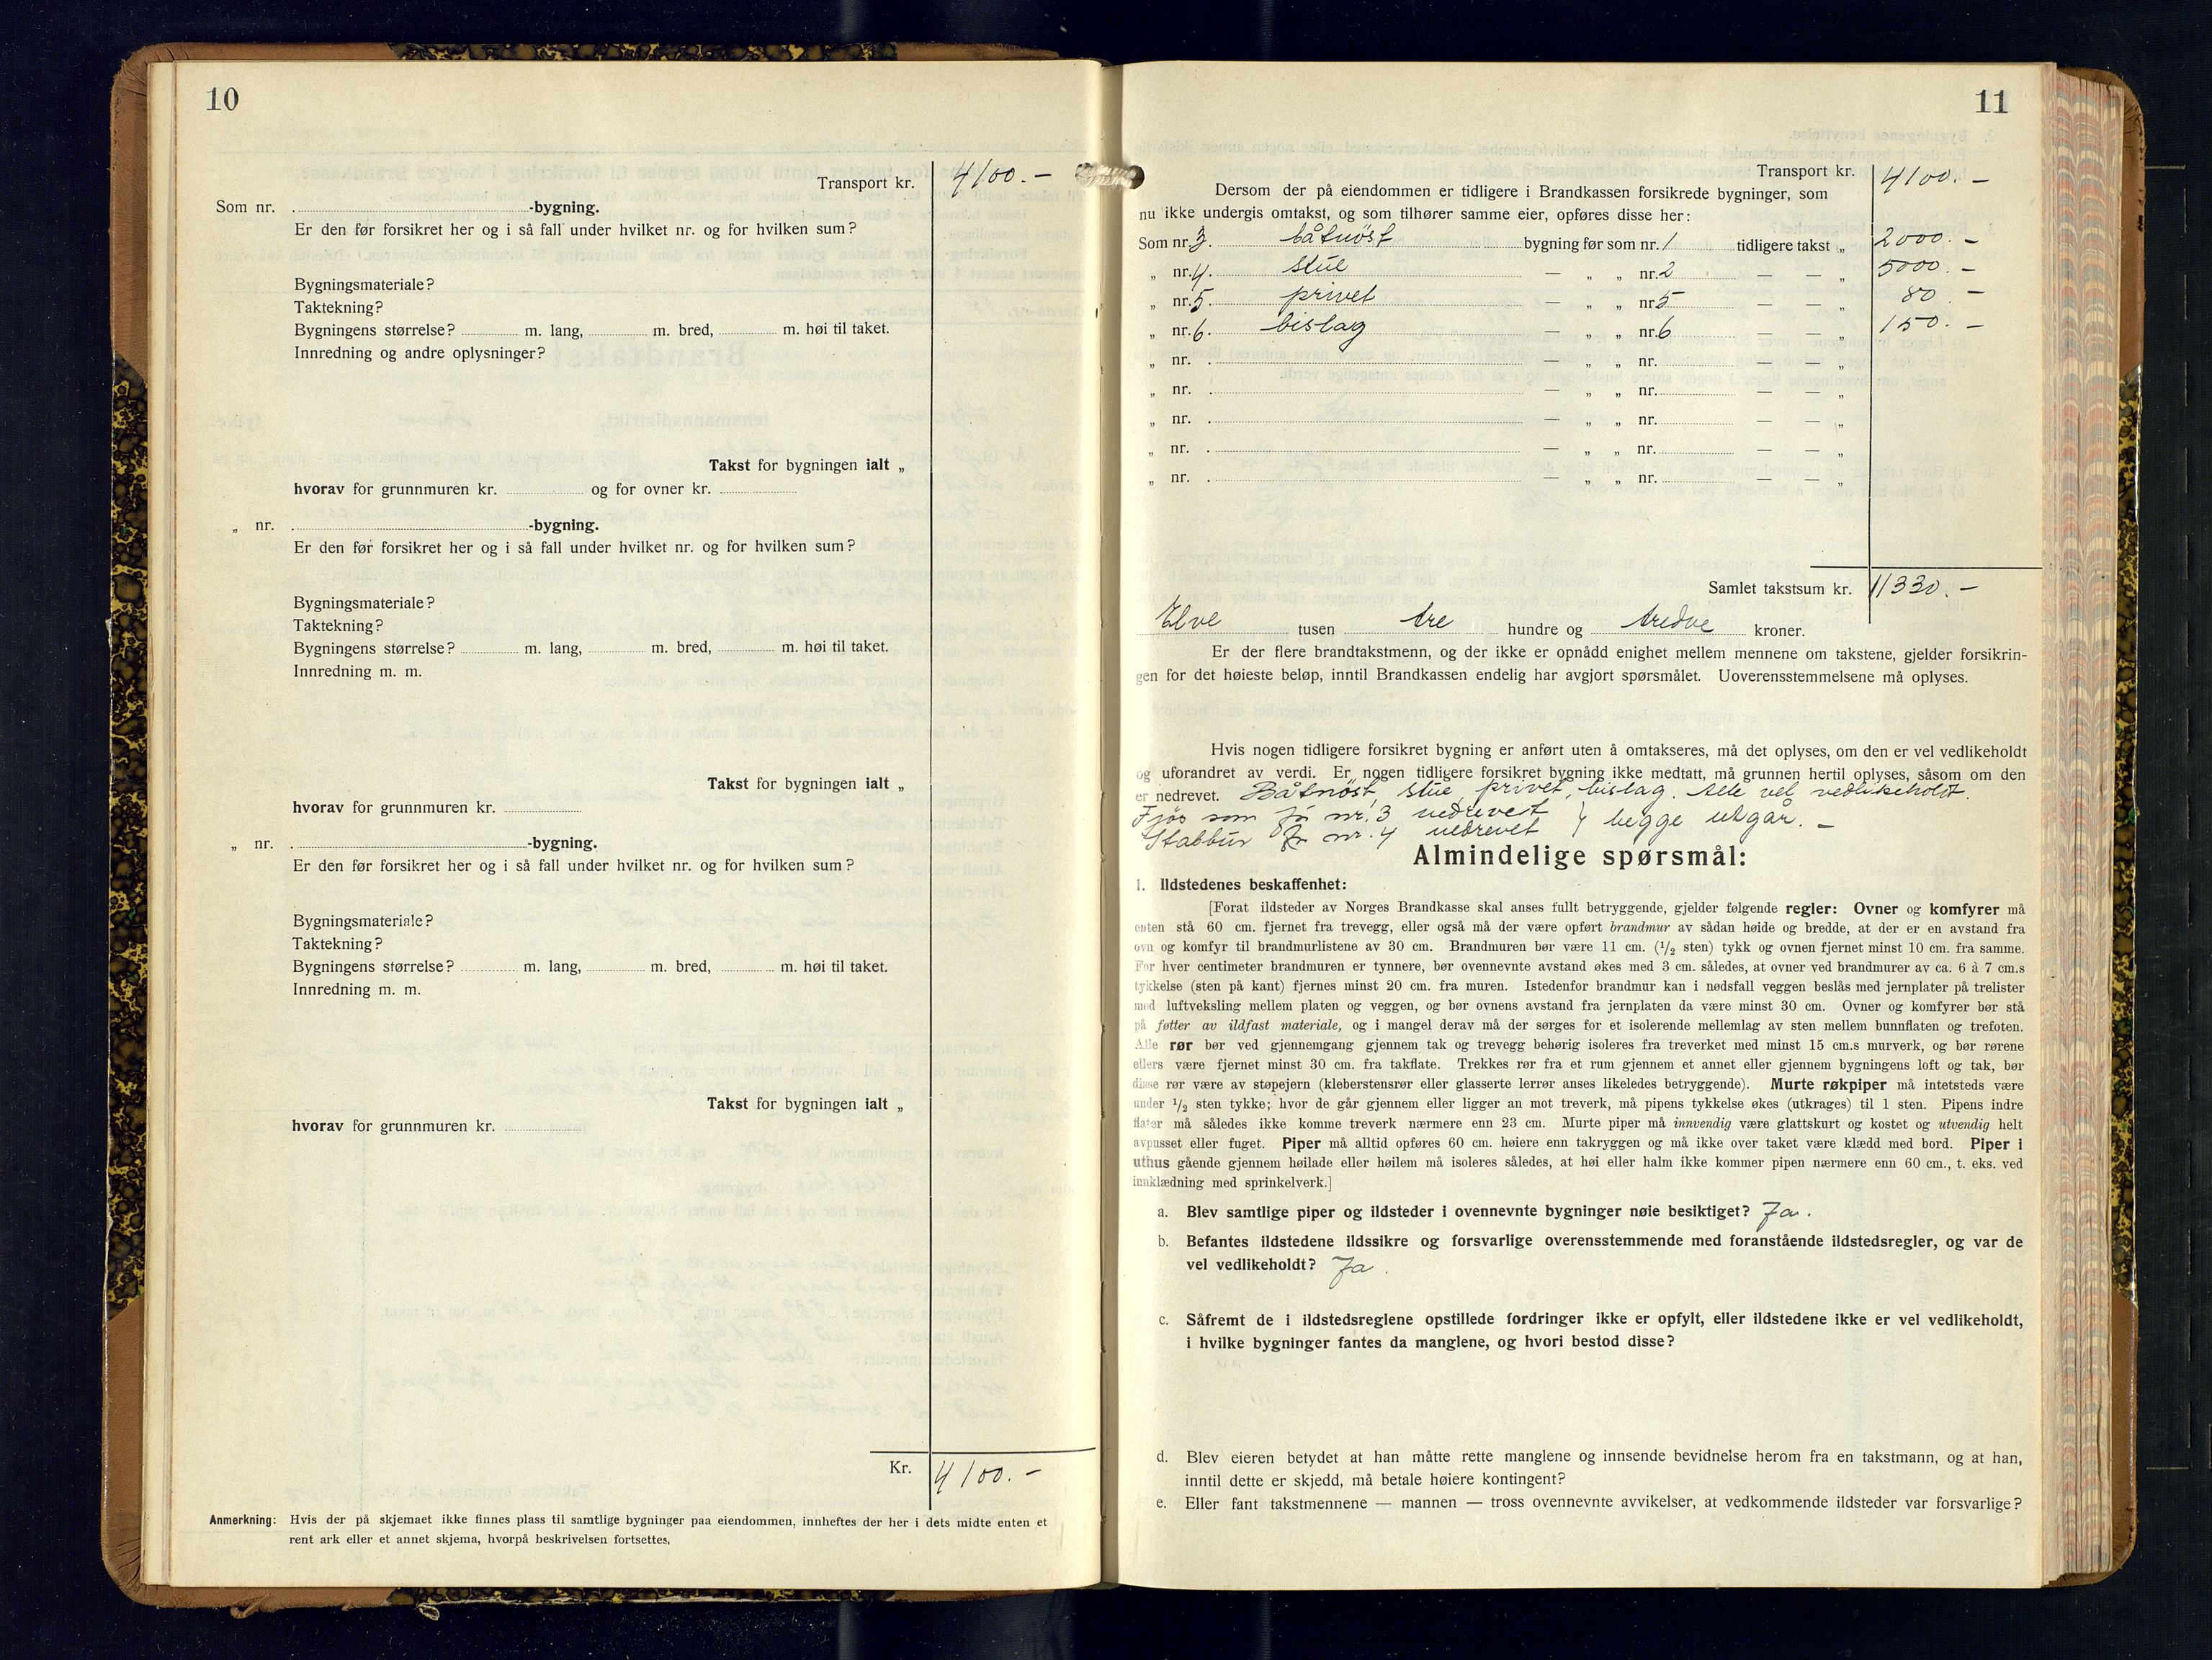 10
Transport kr. 4100.-
Som nr. -bygning.
Er den før forsikret her og i så fall under hvilket nr. og for hvilken sum?
Bygningsmateriale?
Taktekning?
Bygningens størrelse? m. lang, m. bred, m. høi til taket.
Innredning og andre oplysninger?
Takst for bygningen ialt „
hvorav for grunnmuren kr. og for ovner kr.
„ nr. -bygning.
Er den før forsikret her og i så fall under hvilket nr. og for hvilken sum?
Bygningsmateriale?
Taktekning?
Bygningens størrelse? m. lang, m. bred, m. høi til taket.
Innredning m. m.
Takst for bygningen ialt „
hvorav for grunnmuren kr.
„ nr. -bygning.
Er den før forsikret her og i så fall under hvilket nr. og for hvilken sum?
Bygningsmateriale?
Taktekning?
Bygningens størrelse? m. lang, m. bred, m. høi til taket.
Innredning m. m.
Takst for bygningen ialt „
hvorav for grunnmuren kr.
Kr. 4100.-
Anmerkning: Hvis der på skjemaet ikke finnes plass til samtlige bygninger paa eiendommen, innheftes der her i dets midte enten et
rent ark eller et annet skjema, hvorpå beskrivelsen fortsettes.
11
Transport kr. 4100.-
Dersom der på eiendommen er tidligere i Brandkassen forsikrede bygninger, som
nu ikke undergis omtakst, og som tilhører samme eier, opføres disse her:
Som nr. 3. båtnöst bygning før som nr. 1 tidligere takst „ 2000.-
„ nr. 4. stue — „ „ nr. 2 — — „ 5000.-
„ nr. 5. privet — „ „ nr. 5 — — „ 80.-
„ nr. 6. bislag — „ „ nr. 6 — — „ 150.-
„ nr. — „ „ nr. — — „
„ nr. — „ „ nr. — — „
„ nr. — „ „ nr. — — „
„ nr. — „ „ nr. — — „
„ nr. — „ „ nr. — — „
Samlet takstsum kr. 11330.-
Elve tusen tre hundre og tredve kroner.
Er der flere brandtakstmenn, og der ikke er opnådd enighet mellem mennene om takstene, gjelder forsikrin-
gen for det høieste beløp, inntil Brandkassen endelig har avgjort spørsmålet. Uoverensstemmelsene må oplyses.
Hvis nogen tidligere forsikret bygning er anført uten å omtakseres, må det oplyses, om den er vel vedlikeholdt
og uforandret av verdi. Er nogen tidligere forsikret bygning ikke medtatt, må grunnen hertil oplyses, såsom om den
er nedrevet. Båtnöst, stue, privet, bislag. Alle vel vedlikeholdt.
Fjös som før nr. 3 nedrevest } begge utgår. -
Stabbur nr. 4 nedrevet
Almindelige spørsmål:
1. Ildstedenes beskaffenhet:
[Forat ildsteder av Norges Brandkasse skal anses fullt betryggende, gjelder følgende regler: Ovner og komfyrer må
enten stå 60 cm. fjernet fra trevegg, eller også må der være opført brandmur av sådan høide og bredde, at der er en avstand fra
ovn og komfyr til brandmurlistene av 30 cm. Brandmuren bør være 11 cm. (1/2 sten) tykk og ovnen fjernet minst 10 cm. fra samme.
For hver centimeter brandmuren er tynnere, bør ovennevnte avstand økes med 3 cm. således, at ovner ved brandmurer av ca. 6 à 7 cm.s
tykkelse (sten på kant) fjernes minst 20 cm. fra muren. Istedenfor brandmur kan i nødsfall veggen beslås med jernplater på trelister
med luftveksling mellem platen og veggen, og bør ovnens avstand fra jernplaten da være minst 30 cm. Ovner og komfyrer bør stå
på føtter av ildfast materiale, og i mangel derav må der sørges for et isolerende mellemlag av sten mellem bunnflaten og trefoten.
Alle rør bør ved gjennemgang gjennem tak og trevegg behørig isoleres fra treverket med minst 15 cm.s murverk, og bør rørene
ellers være fjernet minst 30 cm. fra takflate. Trekkes rør fra et rum gjennem et annet eller gjennem bygningens loft og tak, bør
disse rør være av støpejern (kleberstensrør eller glasserte lerrør anses likeledes betryggende). Murte røkpiper må intetsteds være
under 1/2 sten tykke; hvor de går gjennem eller ligger an mot treverk, må pipens tykkelse økes (utkrages) til 1 sten. Pipens indre
flater må således ikke komme treverk nærmere enn 23 cm. Murte piper må innvendig være glattskurt og kostet og utvendig helt
avpusset eller fuget. Piper må alltid opføres 60 cm. høiere enn takryggen og må ikke over taket være klædd med bord. Piper i
uthus gående gjennem høilade eller høilem må isoleres således, at høi eller halm ikke kommer pipen nærmere enn 60 cm., t. eks. ved
innklædning med sprinkelverk.]
a. Blev samtlige piper og ildsteder i ovennevnte bygninger nøie besiktiget? Ja.
b. Befantes ildstedene ildssikre og forsvarlige overensstemmende med foranstående ildstedsregler, og var de
vel vedlikeholdt? Ja.
c. Såfremt de i ildstedsreglene opstillede fordringer ikke er opfylt, eller ildstedene ikke er vel vedlikeholdt,
i hvilke bygninger fantes da manglene, og hvori bestod disse?
d. Blev eieren betydet at han måtte rette manglene og innsende bevidnelse herom fra en takstmann, og at han,
inntil dette er skjedd, må betale høiere kontingent?
e. Eller fant takstmennene — mannen — tross ovennevnte avvikelser, at vedkommende ildsteder var forsvarlige?